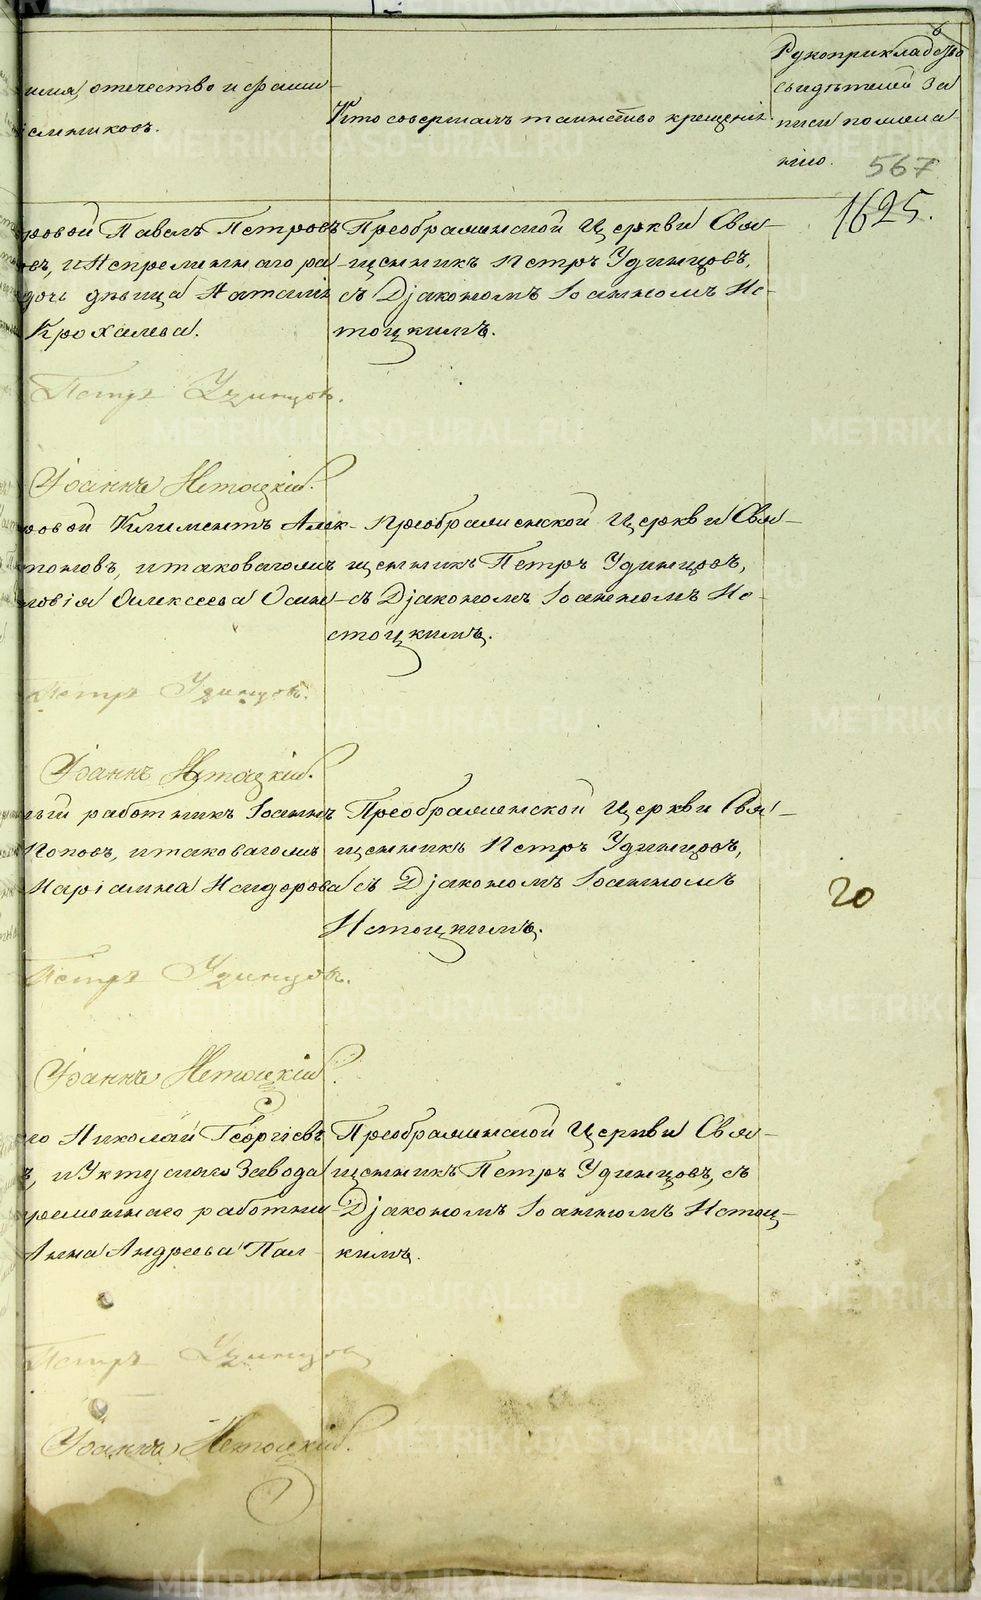 имя, отечество и фами-
емниковъ.
Кто совершалъ таинство крещенія.
Рукоприкладство
свидѣтелей за
писи по жела-
нію.
6
567
1625.
ровой Павелъ Петровъ
овъ, и Непремѣннаго ра-
дочь дѣвица Наталія
Крохалева.
Преображенской Церкви Свя-
щенникъ Петръ Удинцовъ,
съ Діакономъ Іоанномъ Ис-
тоцкимъ.
Петръ Удинцовъ.
Іоаннъ Истоцкій.
ровой Климентъ Алек-
поновъ, и таковагожъ
ловія Алексеева Осин-
Преображенской Церкви Свя-
щенникъ Петръ Удинцовъ,
съ Діакономъ Іоанномъ Ис-
стоцкимъ.
Петръ Удинцовъ.
Іоаннъ Истоцкій.
ный работникъ Іоаннъ
Поповъ, и таковагожъ
Маріамна Исидорова
Преображенской Церкви Свя-
щенникъ Петръ Удинцовъ,
съ Діакономъ Іоанномъ
Истоцкимъ.
20
Петръ Удинцовъ.
Іоаннъ Истоцкій.
го Николай Георгіевъ
ъ, и Уктускаго Завода
ременнаго работни-
Анна Андреева Пал-
Преображенской Церкви Свя-
щенникъ Петръ Удинцовъ, съ
Діакономъ Іоанномъ Истоц-
кимъ.
Петръ Удинцовъ
Іоаннъ Истоцкій.
METRIKI.GASO-URAL.RU